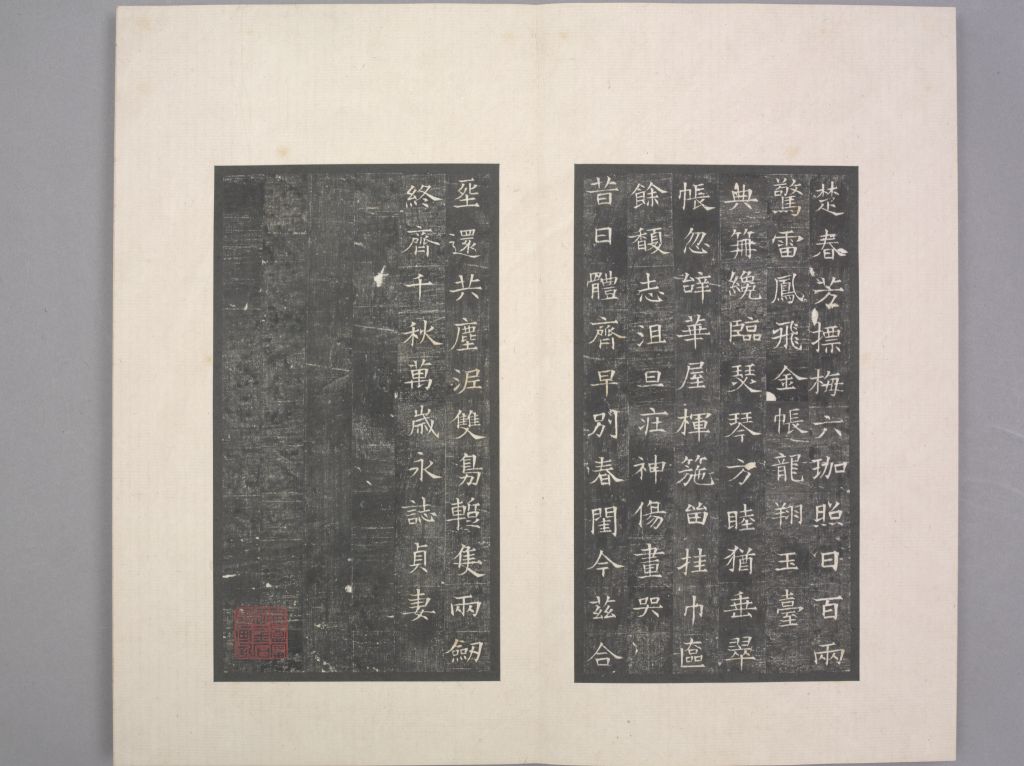 楚春芳摽梅六珈照日百兩
驚雷鳳飛金帳龍翔玉臺
典笧纔臨瑟琴方睦猶垂翠
帳忽辝華屋楎箷笛挂巾匳
餘馥志沮旦疰神傷晝哭
昔日體齊早別春閨今茲合
還共塵泥雙鳧蹔隻兩劔
終齊千秋萬歲永誌貞妻